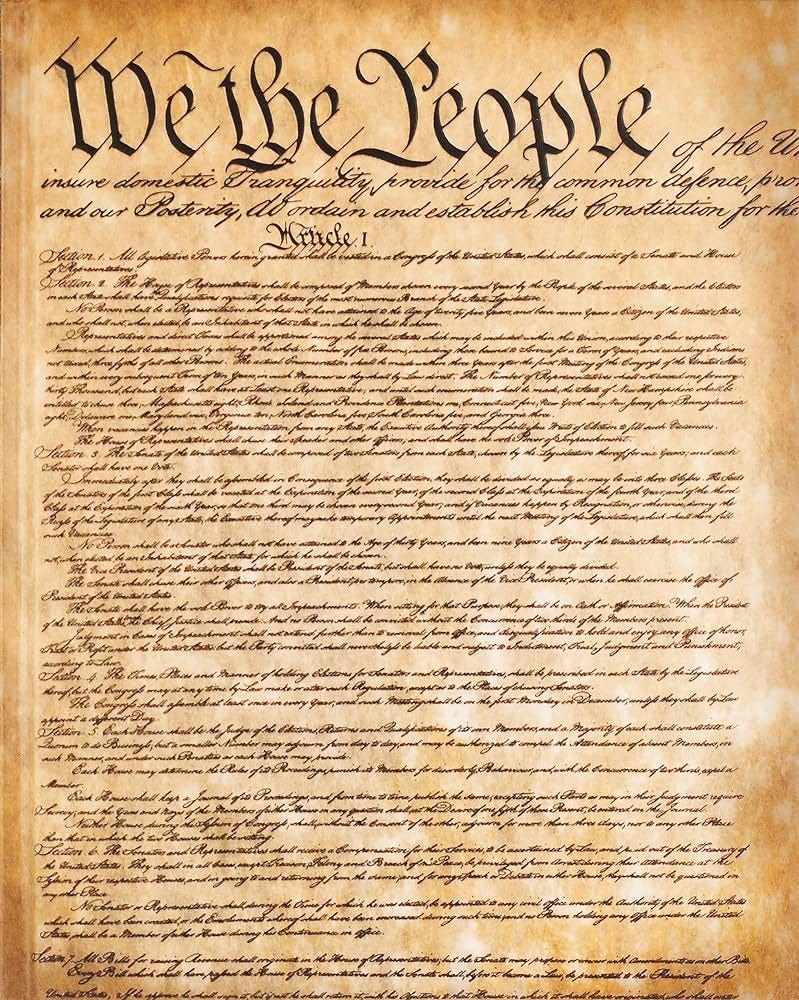 We the People of the Un
insure domestic Tranquility, provide for the common defence, pro
and our Posterity, do ordain and establish this Constitution for the
Article. I.
Section. 1. All legislative Powers herein granted shall be vested in a Congress of the United States, which shall consist of a Senate and House
of Representatives.
Section. 2. The House of Representatives shall be composed of Members chosen every second Year by the People of the several States, and the Electors
in each State shall have the Qualifications requisite for Electors of the most numerous Branch of the State Legislature.
No Person shall be a Representative who shall not have attained to the Age of twenty five Years, and been seven Years a Citizen of the United States,
and who shall not, when elected, be an Inhabitant of that State in which he shall be chosen.
Representatives and direct Taxes shall be apportioned among the several States which may be included within this Union, according to their respective
Numbers, which shall be determined by adding to the whole Number of free Persons, including those bound to Service for a Term of Years, and excluding Indians
not taxed, three fifths of all other Persons. The actual Enumeration shall be made within three Years after the first Meeting of the Congress of the United States,
and within every subsequent Term of ten Years, in such Manner as they shall by Law direct. The Number of Representatives shall not exceed one for every
thirty Thousand, but each State shall have at Least one Representative; and until such enumeration shall be made, the State of New Hampshire shall be
entitled to chuse three, Massachusetts eight, Rhode Island and Providence Plantations one, Connecticut five, New York six, New Jersey four, Pennsylvania
eight, Delaware one, Maryland six, Virginia ten, North Carolina five, South Carolina five, and Georgia three.
When vacancies happen in the Representation from any State, the Executive Authority thereof shall issue Writs of Election to fill such Vacancies.
The House of Representatives shall chuse their Speaker and other Officers; and shall have the sole Power of Impeachment.
Section. 3. The Senate of the United States shall be composed of two Senators from each State, chosen by the Legislature thereof, for six Years; and each
Senator shall have one Vote.
Immediately after they shall be assembled in Consequence of the first Election, they shall be divided as equally as may be into three Classes. The Seats
of the Senators of the first Class shall be vacated at the Expiration of the second Year, of the second Class at the Expiration of the fourth Year, and of the third
Class at the Expiration of the sixth Year, so that one third may be chosen every second Year; and if Vacancies happen by Resignation, or otherwise, during the
Recess of the Legislature of any State, the Executive thereof may make temporary Appointments until the next Meeting of the Legislature, which shall then fill
such Vacancies.
No Person shall be a Senator who shall not have attained to the Age of thirty Years, and been nine Years a Citizen of the United States, and who shall
not, when elected, be an Inhabitant of that State for which he shall be chosen.
The Vice President of the United States shall be President of the Senate, but shall have no Vote, unless they be equally divided.
The Senate shall chuse their other Officers, and also a President pro tempore, in the Absence of the Vice President, or when he shall exercise the Office of
President of the United States.
The Senate shall have the sole Power to try all Impeachments. When sitting for that Purpose, they shall be on Oath or Affirmation. When the President
of the United States is tried, the Chief Justice shall preside: And no Person shall be convicted without the Concurrence of two thirds of the Members present.
Judgment in Cases of Impeachment shall not extend further than to removal from Office, and disqualification to hold and enjoy any Office of honor,
Trust or Profit under the United States: but the Party convicted shall nevertheless be liable and subject to Indictment, Trial, Judgment and Punishment,
according to Law.
Section. 4. The Times, Places and Manner of holding Elections for Senators and Representatives, shall be prescribed in each State by the Legislature
thereof; but the Congress may at any time by Law make or alter such Regulations, except as to the Places of chusing Senators.
The Congress shall assemble at least once in every Year, and such Meeting shall be on the first Monday in December, unless they shall by Law
appoint a different Day.
Section. 5. Each House shall be the Judge of the Elections, Returns and Qualifications of its own Members, and a Majority of each shall constitute a
Quorum to do Business; but a smaller Number may adjourn from day to day, and may be authorized to compel the Attendance of absent Members, in
such Manner, and under such Penalties as each House may provide.
Each House may determine the Rules of its Proceedings, punish its Members for disorderly Behaviour, and, with the Concurrence of two thirds, expel a
Member.
Each House shall keep a Journal of its Proceedings, and from time to time publish the same, excepting such Parts as may in their Judgment require
Secrecy; and the Yeas and Nays of the Members of either House on any question shall, at the Desire of one fifth of those Present, be entered on the Journal.
Neither House, during the Session of Congress, shall, without the Consent of the other, adjourn for more than three days, nor to any other Place
than that in which the two Houses shall be sitting.
Section. 6. The Senators and Representatives shall receive a Compensation for their Services, to be ascertained by Law, and paid out of the Treasury of
the United States. They shall in all Cases, except Treason, Felony and Breach of the Peace, be privileged from Arrest during their Attendance at the
Session of their respective Houses, and in going to and returning from the same; and for any Speech or Debate in either House, they shall not be questioned in
any other Place.
No Senator or Representative shall, during the Time for which he was elected, be appointed to any civil Office under the Authority of the United States
which shall have been created, or the Emoluments whereof shall have been increased during such time; and no Person holding any Office under the United
States, shall be a Member of either House during his Continuance in Office.
Section. 7. All Bills for raising Revenue shall originate in the House of Representatives; but the Senate may propose or concur with Amendments as on other Bills.
Every Bill which shall have passed the House of Representatives and the Senate, shall, before it become a Law, be presented to the President of the
United States; If he approve he shall sign it, but if not he shall return it, with his Objections to that House in which it shall have originated, who shall enter